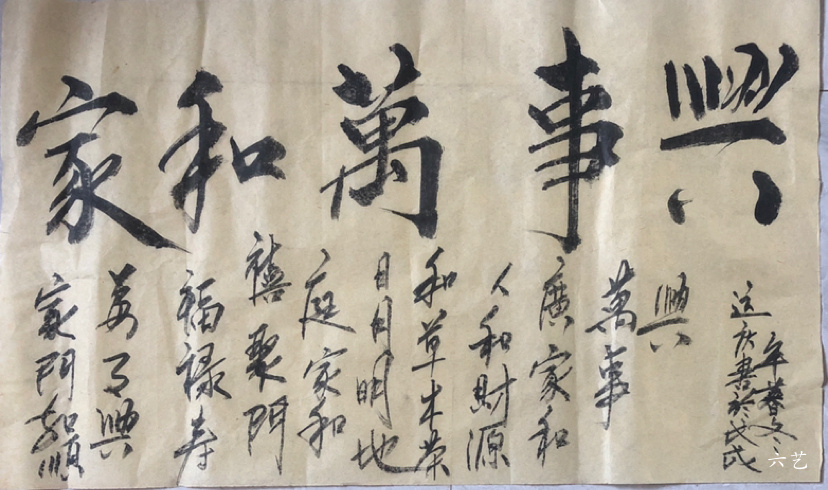 家和萬事興
家門和順
萬事興
福禄寿
禧聚門
庭家和
日月明地
和草木荣
人和財源
廣家和
萬事
興
运庆書於戊戌
年暮冬
六艺